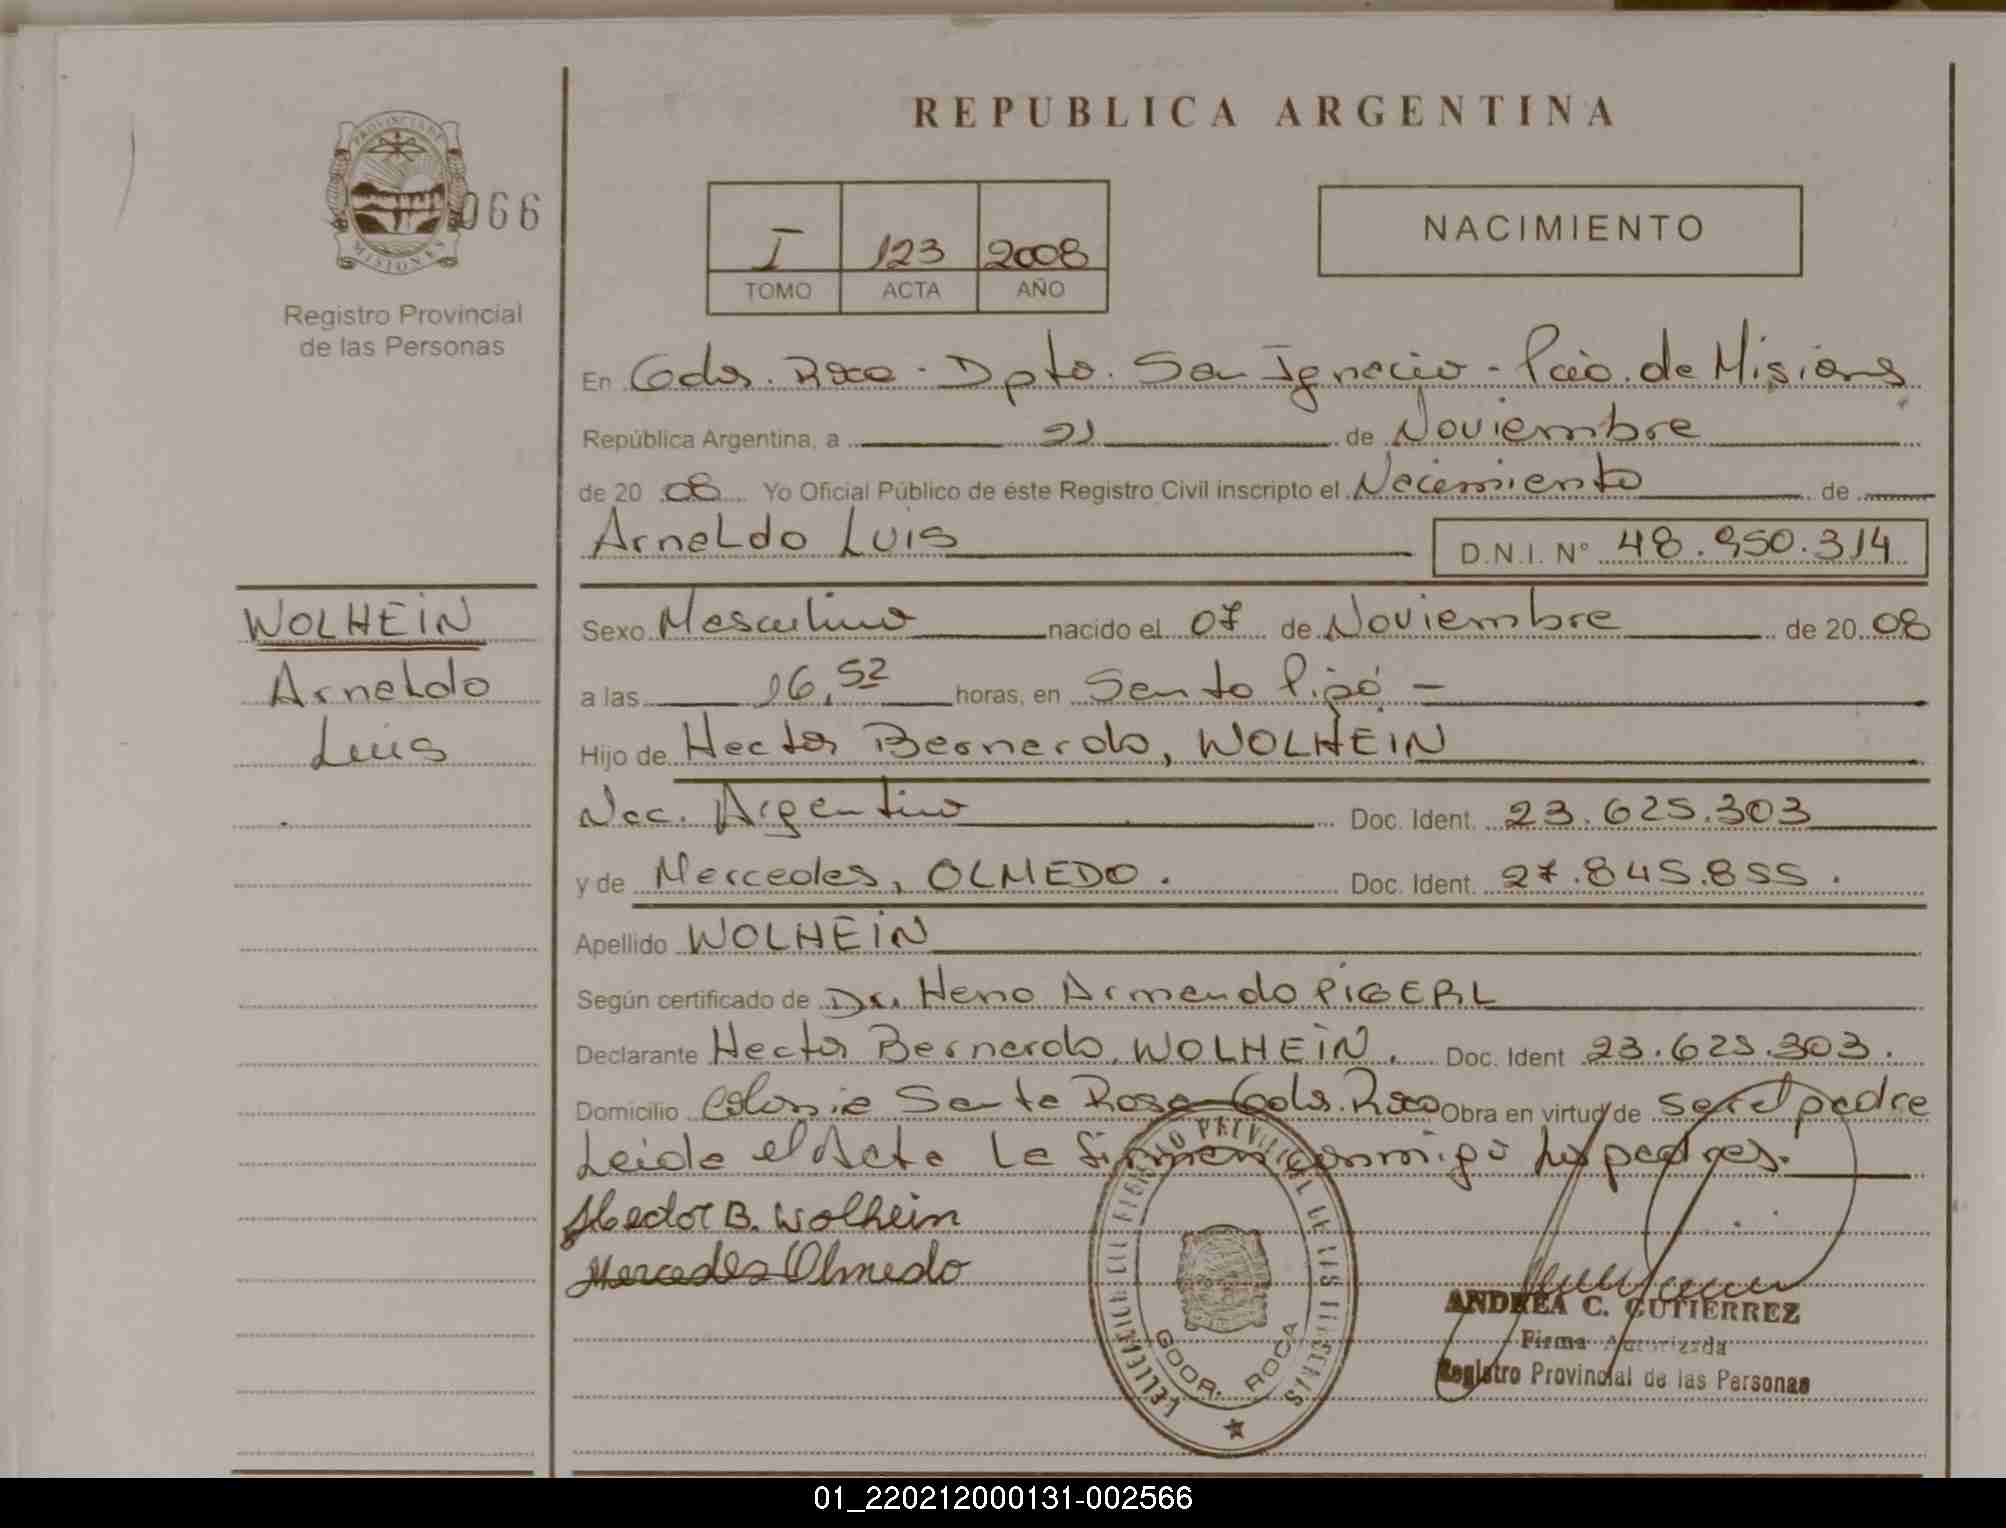 REPUBLICA ARGENTINA
PROVINCIA DE
MISIONES
066
Registro Provincial
de las Personas
I 123 2008
TOMO ACTA AÑO
NACIMIENTO
En Gdor. Roca - Dpto. San Ignacio - Pcia. de Misiones
República Argentina, a 21 de Noviembre
de 20 08 Yo Oficial Público de éste Registro Civil inscripto el Nacimiento de
Arnaldo Luis D.N.I. N° 48.950.314
WOLHEIN
Arnaldo
Luis
Sexo Masculino nacido el 07 de Noviembre de 20 08
a las 16,52 horas, en Santo Pipó -
Hijo de Hector Bernardo, WOLHEIN
Nac. Argentino Doc. Ident. 23.625.303
y de Mercedes, OLMEDO. Doc. Ident. 27.845.855.
Apellido WOLHEIN
Según certificado de Dr. Heno Armando PIGERL
Declarante Hector Bernardo, WOLHEIN. Doc. Ident 23.625.303.
Domicilio Colonia Santa Rosa Gdor. Roca Obra en virtud de ser el padre
Leida el Acta la firman conmigo los padres.
Hector B. Wolhein
Mercedes Olmedo
GDOR. ROCA
ANDREA C. GUTIERREZ
Firma Autorizada
Registro Provincial de las Personas
01_220212000131-002566